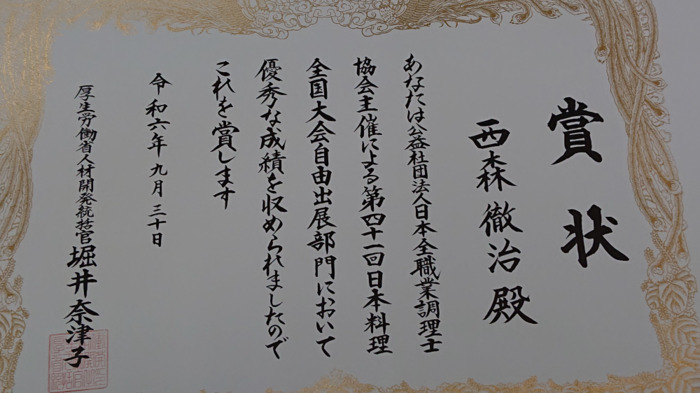 賞状
西森徹治殿
あなたは公益社団法人日本全職業調理士
協会主催による第四十一回日本料理
全国大会自由出展部門において
優秀な成績を収められましたので
これを賞します
令和六年九月三十日
厚生労働省人材開発統括官堀井奈津子